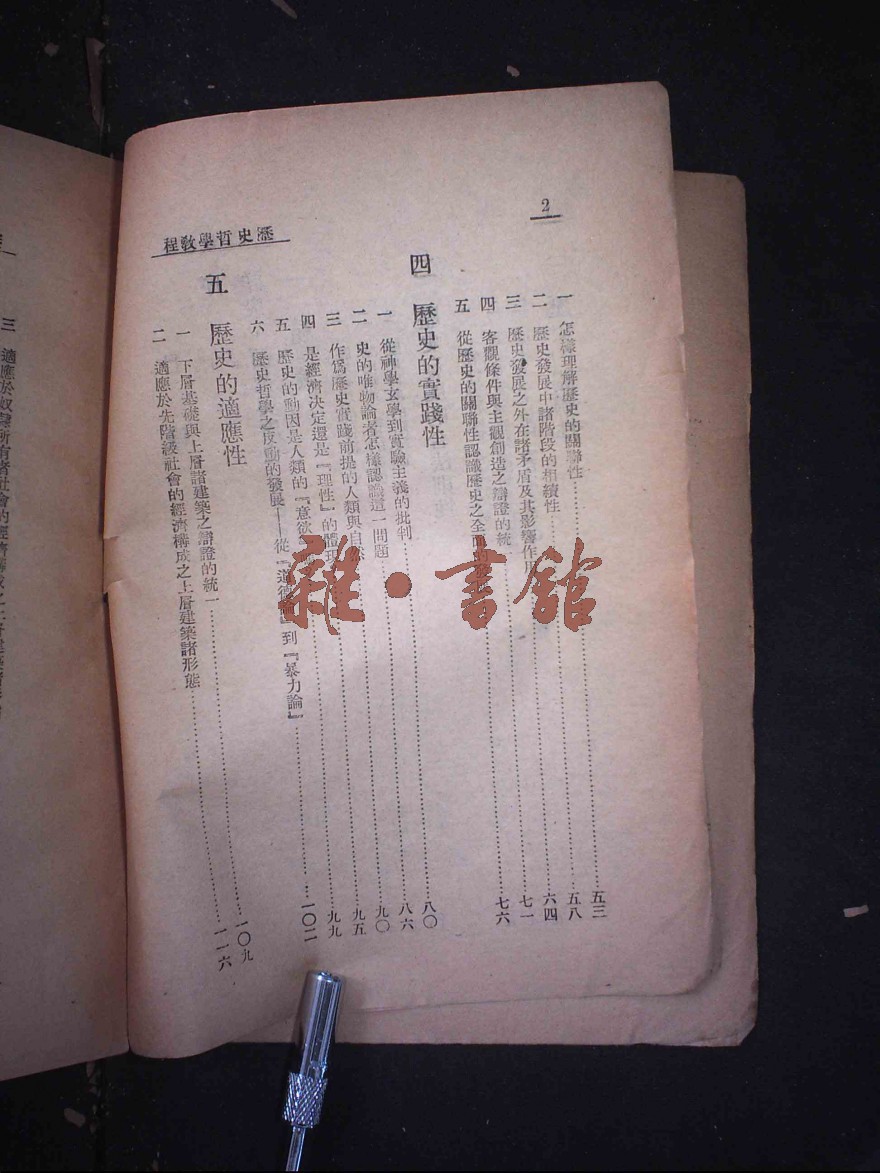 2
歷史哲學教程
一 怎樣理解歷史的關聯性 五三
二 歷史發展中諸階段的相續性 五八
三 歷史發展之外在諸矛盾及其影響作用 六四
四 客觀條件與主觀創造之辯證的統一 七一
五 從歷史的關聯性認識歷史之全面的 七六
四 歷史的實踐性
一 從神學玄學到實驗主義的批判 八〇
二 史的唯物論者怎樣認識這一問題 八六
三 作爲歷史實踐前提的人類與自然 九〇
四 是經濟决定還是『理性』的體現 九五
五 歷史的動因是人類的『意欲 九九
六 歷史哲學之反動的發展——從『道德論』到『暴力論』 一〇二
五 歷史的適應性
一 下層基礎與上層諸建築之辯證的統一 一〇九
二 適應於先階級社會的經濟構成之上層建築諸形態 一一六
三 適應於奴隸所有者社會的經濟構成之上層建築
雜·書館